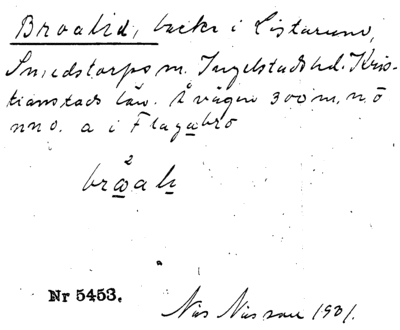 Broalid, backe i Listarum,
Smedstorps sn. Ingelstads hd. Kris-
tianstads län. Å vägen 300 m. n ö
nno. a i Flagabro
2
Nr 5453.
Nils Nilsson 1931.